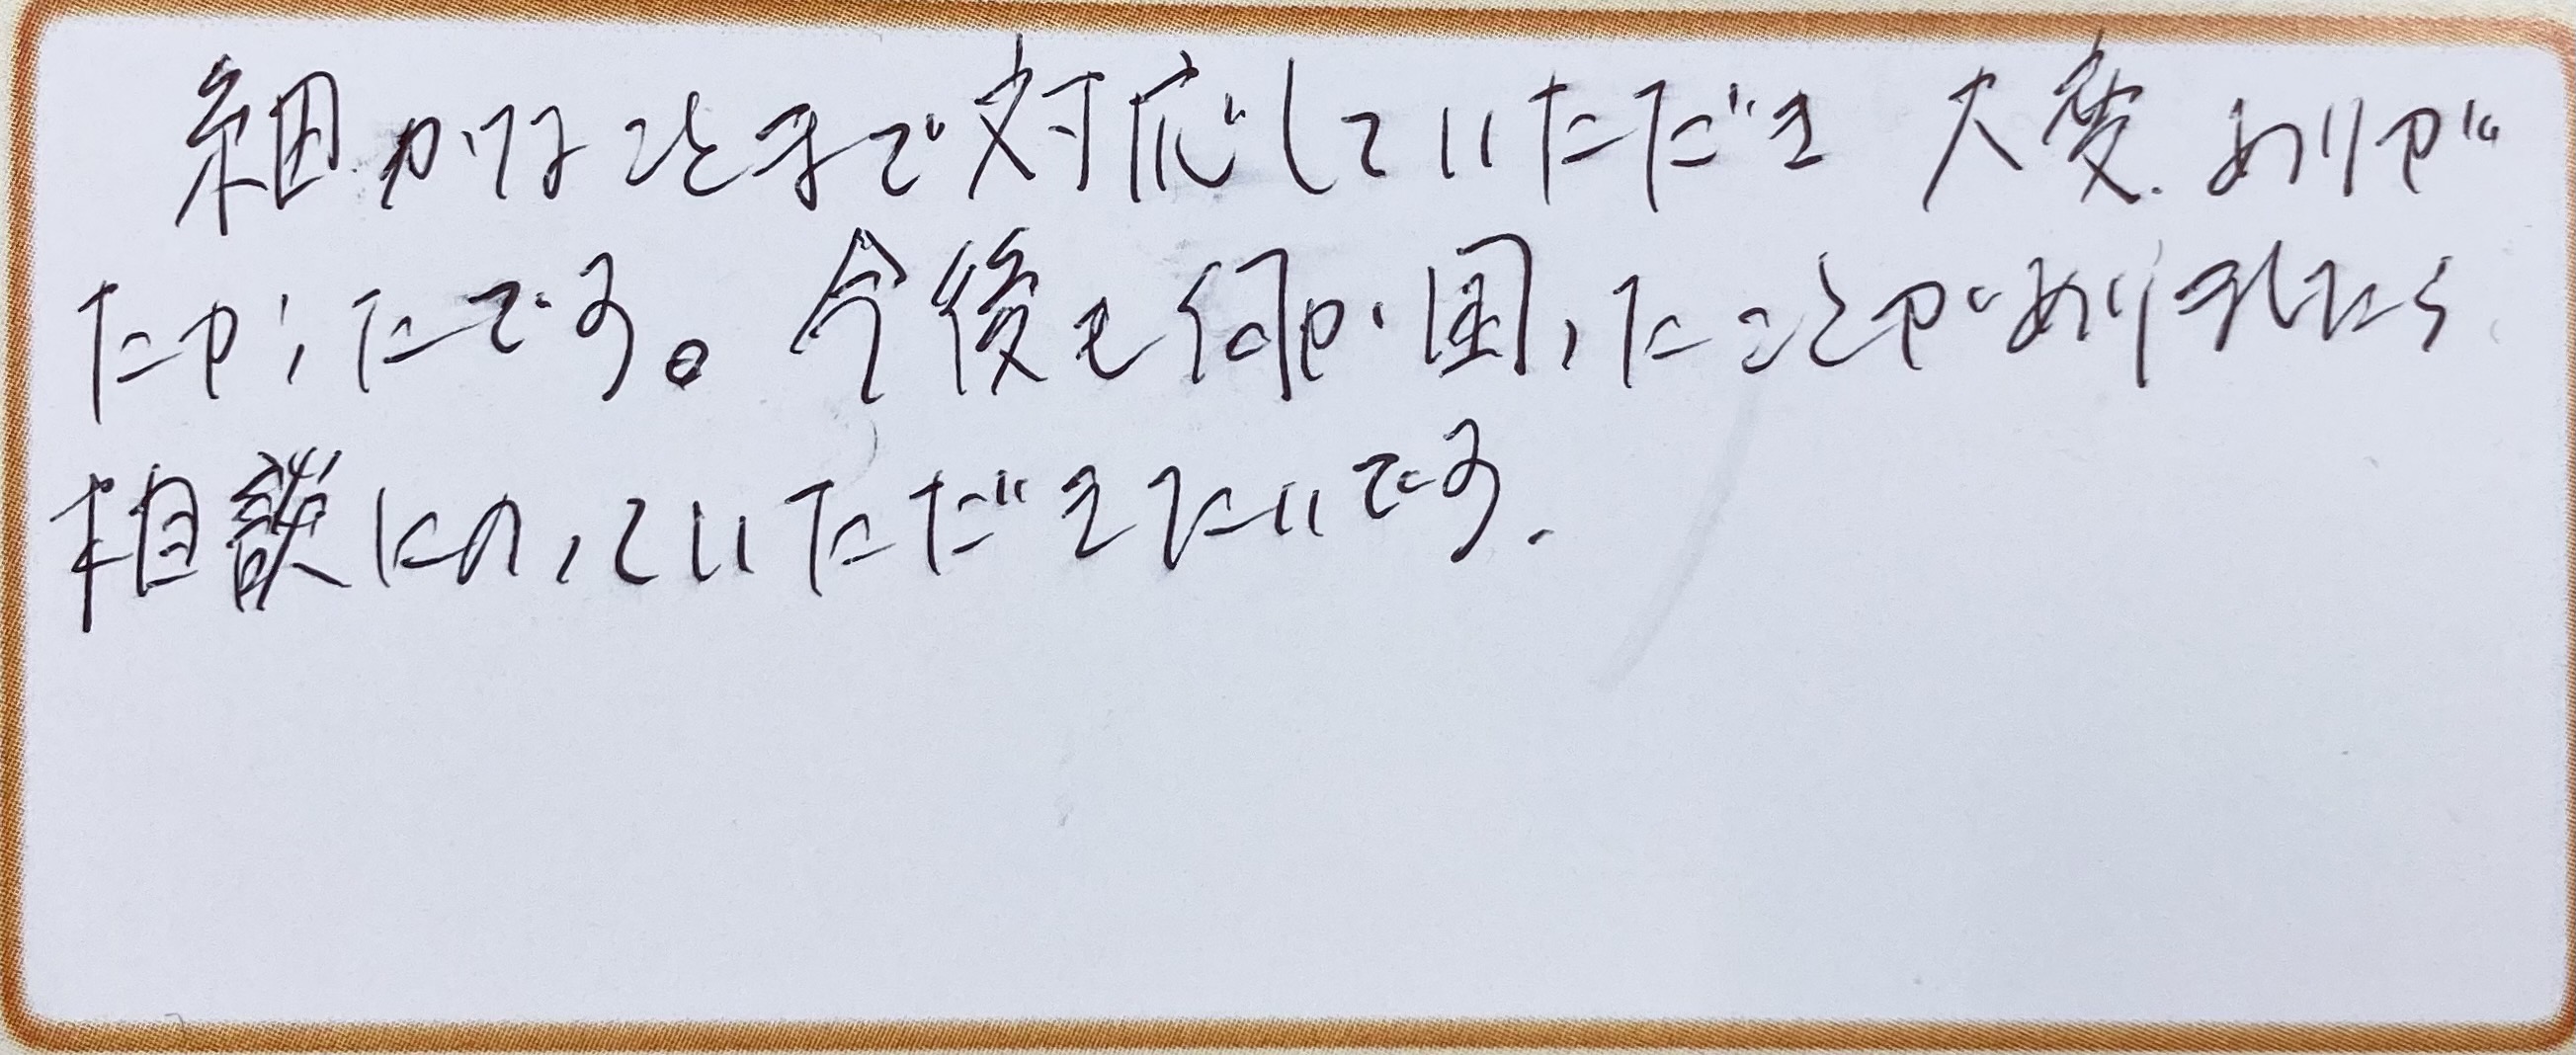 細かなことまで対応していただき 大変ありが
たかったです。今後も何か困ったことがありましたら
相談にのっていただきたいです.